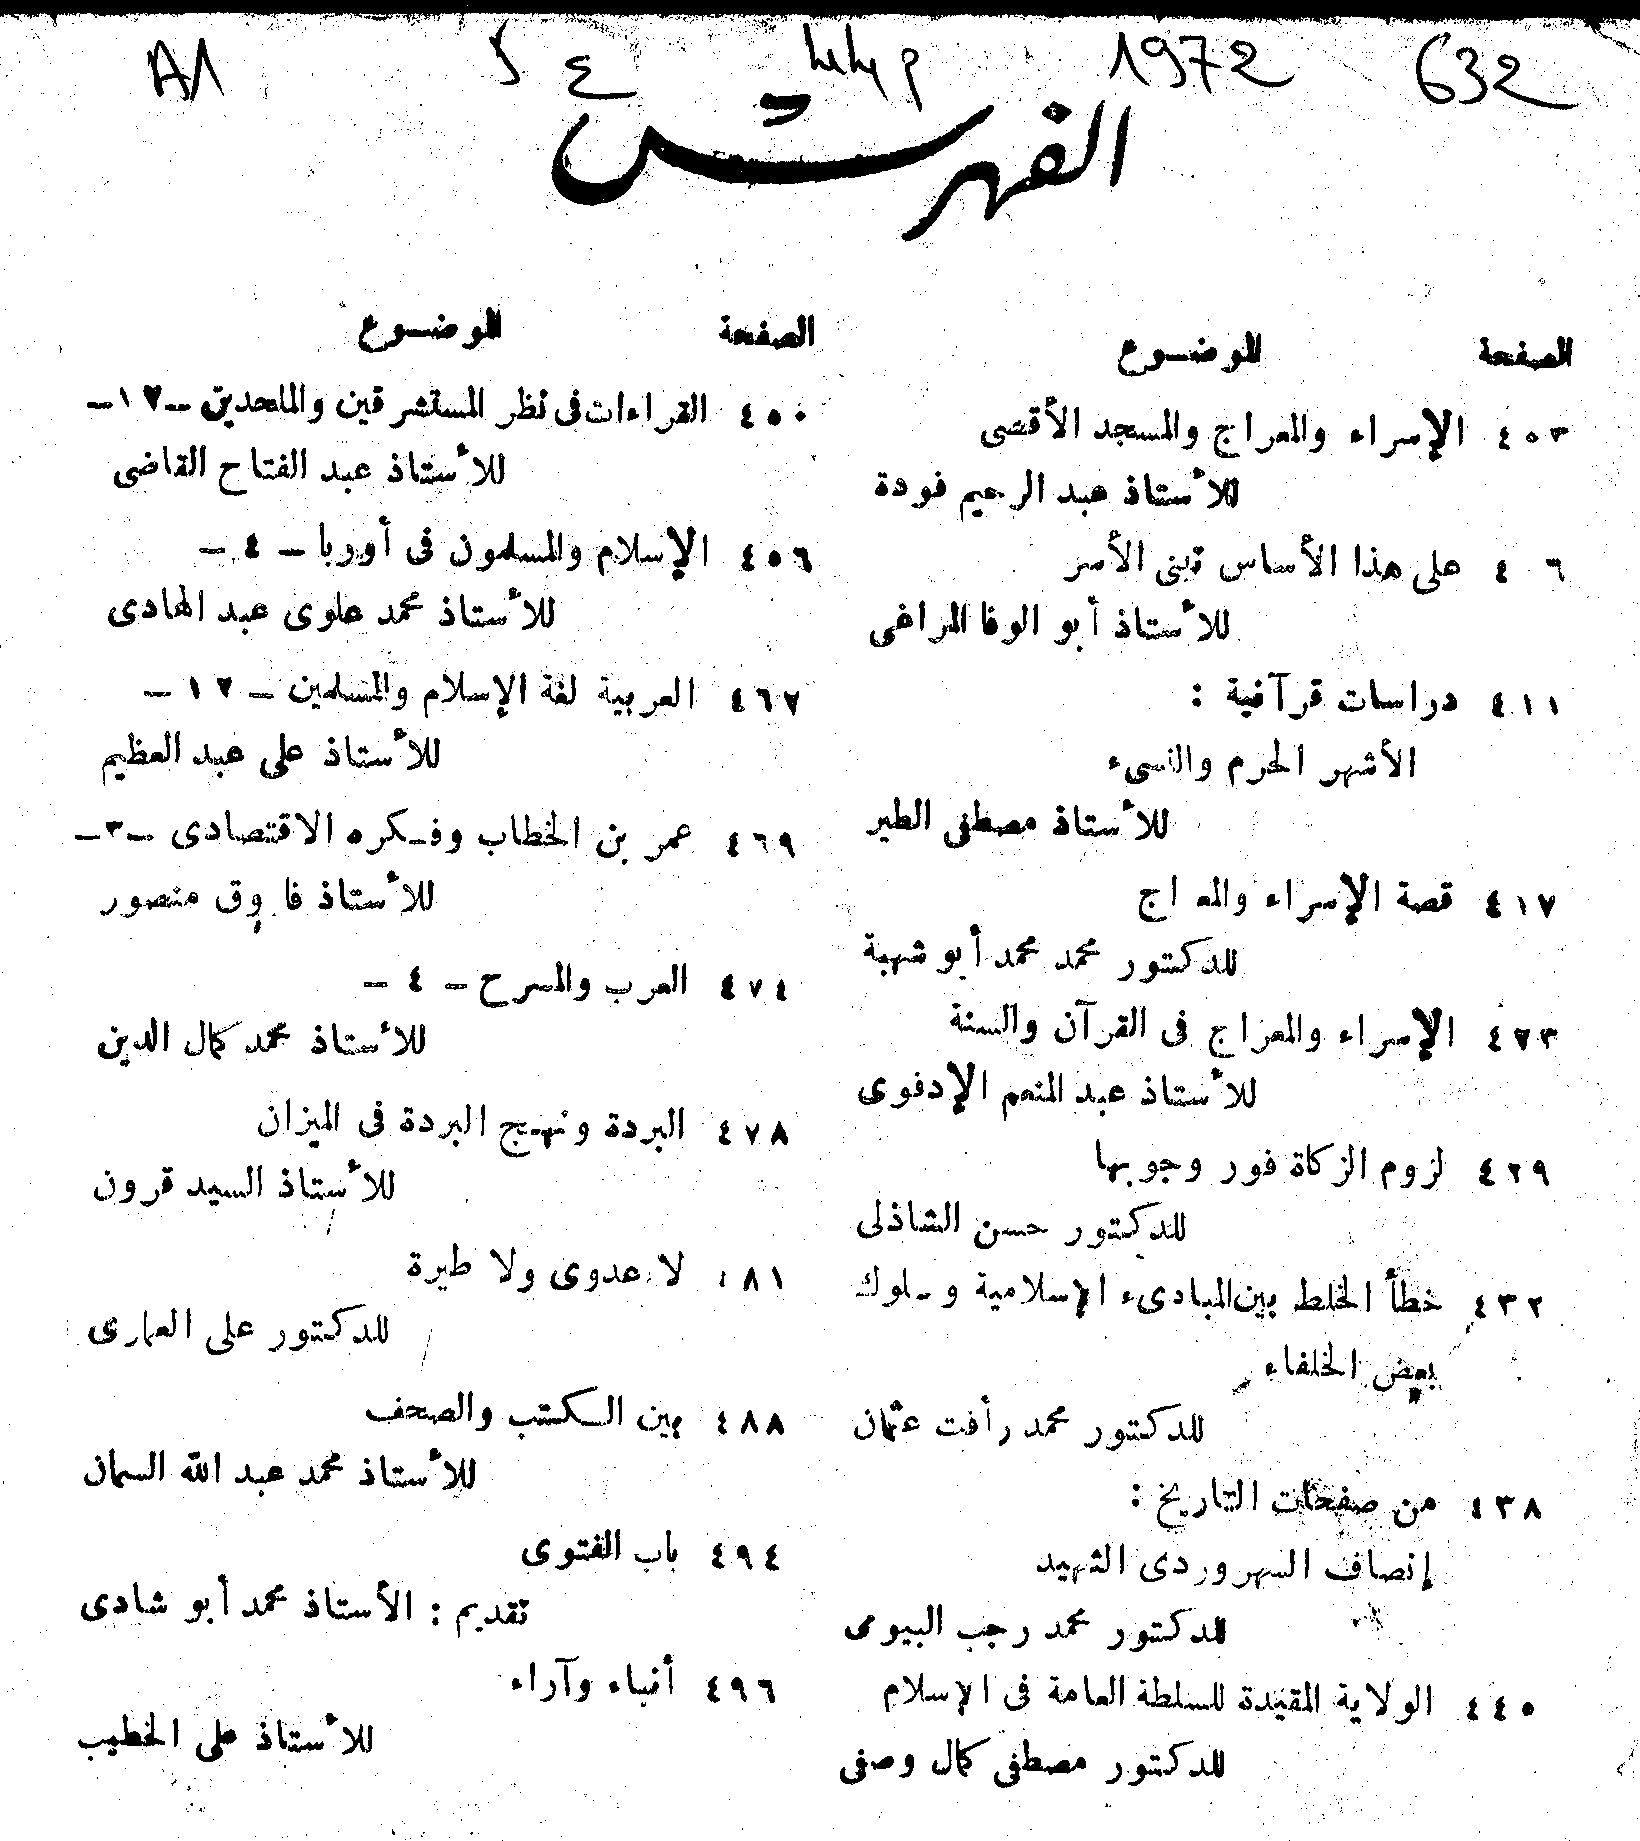 632
1972
الفهرس
الصفحة الموضوع
٤٥٣ الإسراء والمعراج والمسجد الأقصى
للأستاذ عبد الرحيم فودة
٤ ٦ على هذا الأساس تبنى الأسر
للأستاذ أبو الوفا المراغى
٤١١ دراسات قرآنية :
الأشهر الحرم والنسىء
للأستاذ مصطفى الطير
٤١٧ قصة الإسراء والمعراج
للدكتور محمد محمد أبو شهبة
٤٢٣ الإسراء والمعراج فى القرآن والسنة
للأستاذ عبد المنعم الإدفوى
٤٢٩ لزوم الزكاة فور وجوبها
للدكتور حسن الشاذلى
٤٣٢ خطأ الخلط بين المبادىء الإسلامية وسلوك
بعض الخلفاء
للدكتور محمد رأفت عثمان
٤٣٨ من صفحات التاريخ :
إنصاف السهروردى الشهيد
للدكتور محمد رجب البيومى
٤٤٥ الولاية المقيدة للسلطة العامة فى الإسلام
للدكتور مصطفى كمال وصفى
الصفحة الموضوع
٤٥٠ القراءات فى نظر المستشرقين والملحدين -١٢-
للأستاذ عبد الفتاح القاضى
٤٥٦ الإسلام والمسلمون فى أوربا - ٤ -
للأستاذ محمد علوى عبد الهادى
٤٦٧ العربية لغة الإسلام والمسلمين - ١٢ -
للأستاذ على عبد العظيم
٤٦٩ عمر بن الخطاب وفكره الاقتصادى -٣-
للأستاذ فاروق منصور
٤٧٤ العرب والمسرح - ٤ -
للأستاذ محمد كمال الدين
٤٧٨ البردة ونهج البردة فى الميزان
للأستاذ السيد قرون
٤٨١ لا عدوى ولا طيرة
للدكتور على العمارى
٤٨٨ بين الكتب والصحف
للأستاذ محمد عبد الله السمان
٤٩٤ باب الفتوى
تقديم : الأستاذ محمد أبو شادى
٤٩٦ أنباء وآراء
للأستاذ على الخطيب